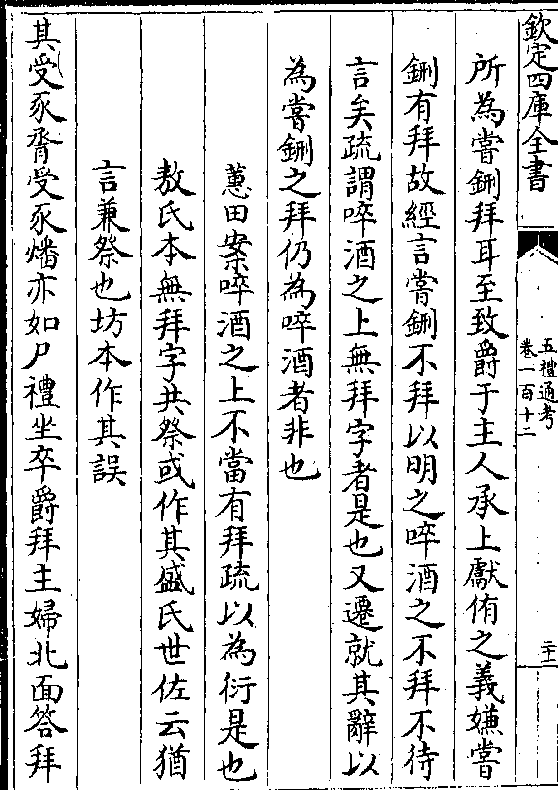 欽定四庫全書
五禮通考
卷一百十二
二十二
所為嘗鉶拜耳至致爵于主人承上獻侑之義嫌嘗
鉶有拜故經言嘗鉶不拜以明之啐酒之不拜不待
言矣疏謂啐酒之上無拜字者是也又遷就其辭以
為嘗鉶之拜仍為啐酒者非也
蕙田案啐酒之上不當有拜疏以為衍是也
敖氏本無拜字共祭或作其盛氏世佐云猶
言兼祭也坊本作其誤
其受豕脀受豕燔亦如尸禮坐卒爵拜主婦北面答拜